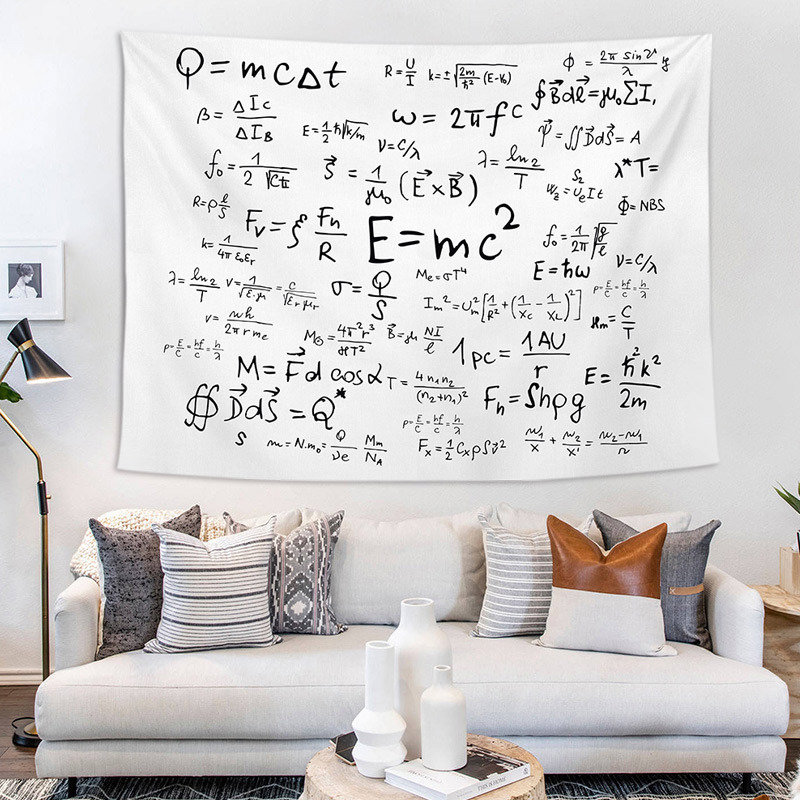 Q = mcΔt
R = U/I
k = ±√(2m/ħ² (E-V₀))
ϕ = 2π sinϑ/λ y
∮B⃗dℓ⃗ = μ₀ΣI,
β = ΔIc/ΔIB
E = 1/2 ħ√k/m
ω = 2πf
ν = c/λ
Ψ⃗ = ∬D⃗dS⃗ = A
f₀ = 1/2√Ct
S⃗ = 1/μ₀ (E⃗×B⃗)
λ = ln₂/T
λ*T=
R = ρ ℓ/S
Fv = ξ Fn/R
E = mc²
Φ = NBS
k = 1/4πε₀εr
f₀ = 1/2π √g/ℓ
E = ħω
ν = c/λ
λ = ln₂/T
v = 1/√ε·μ = c/√εrμr
σ = Q/S
Me = σT⁴
Im² = Um²[1/R² + (1/Xc - 1/XL)²]
p = E/c = hf/c = h/λ
v = nh/2πrme
M⊙ = 4π²r³/ϰT²
B⃗ = μ NI/ℓ
1pc = 1AU/r
p = E/c = hf/c = h/λ
M = F⃗d cosα
T = 4n₁n₂/(n₂+n₁)²
E = ħ²k²/2m
∯D⃗dS⃗ = Q*
S
Fh = Shρg
p = E/c = hf/c = h/λ
m = N.m₀ = Q/νe Mm/NA
Fx = 1/2 CxρSv²
n₁/x + n₂/x' = n₂-n₁/r
THIS IS HOME